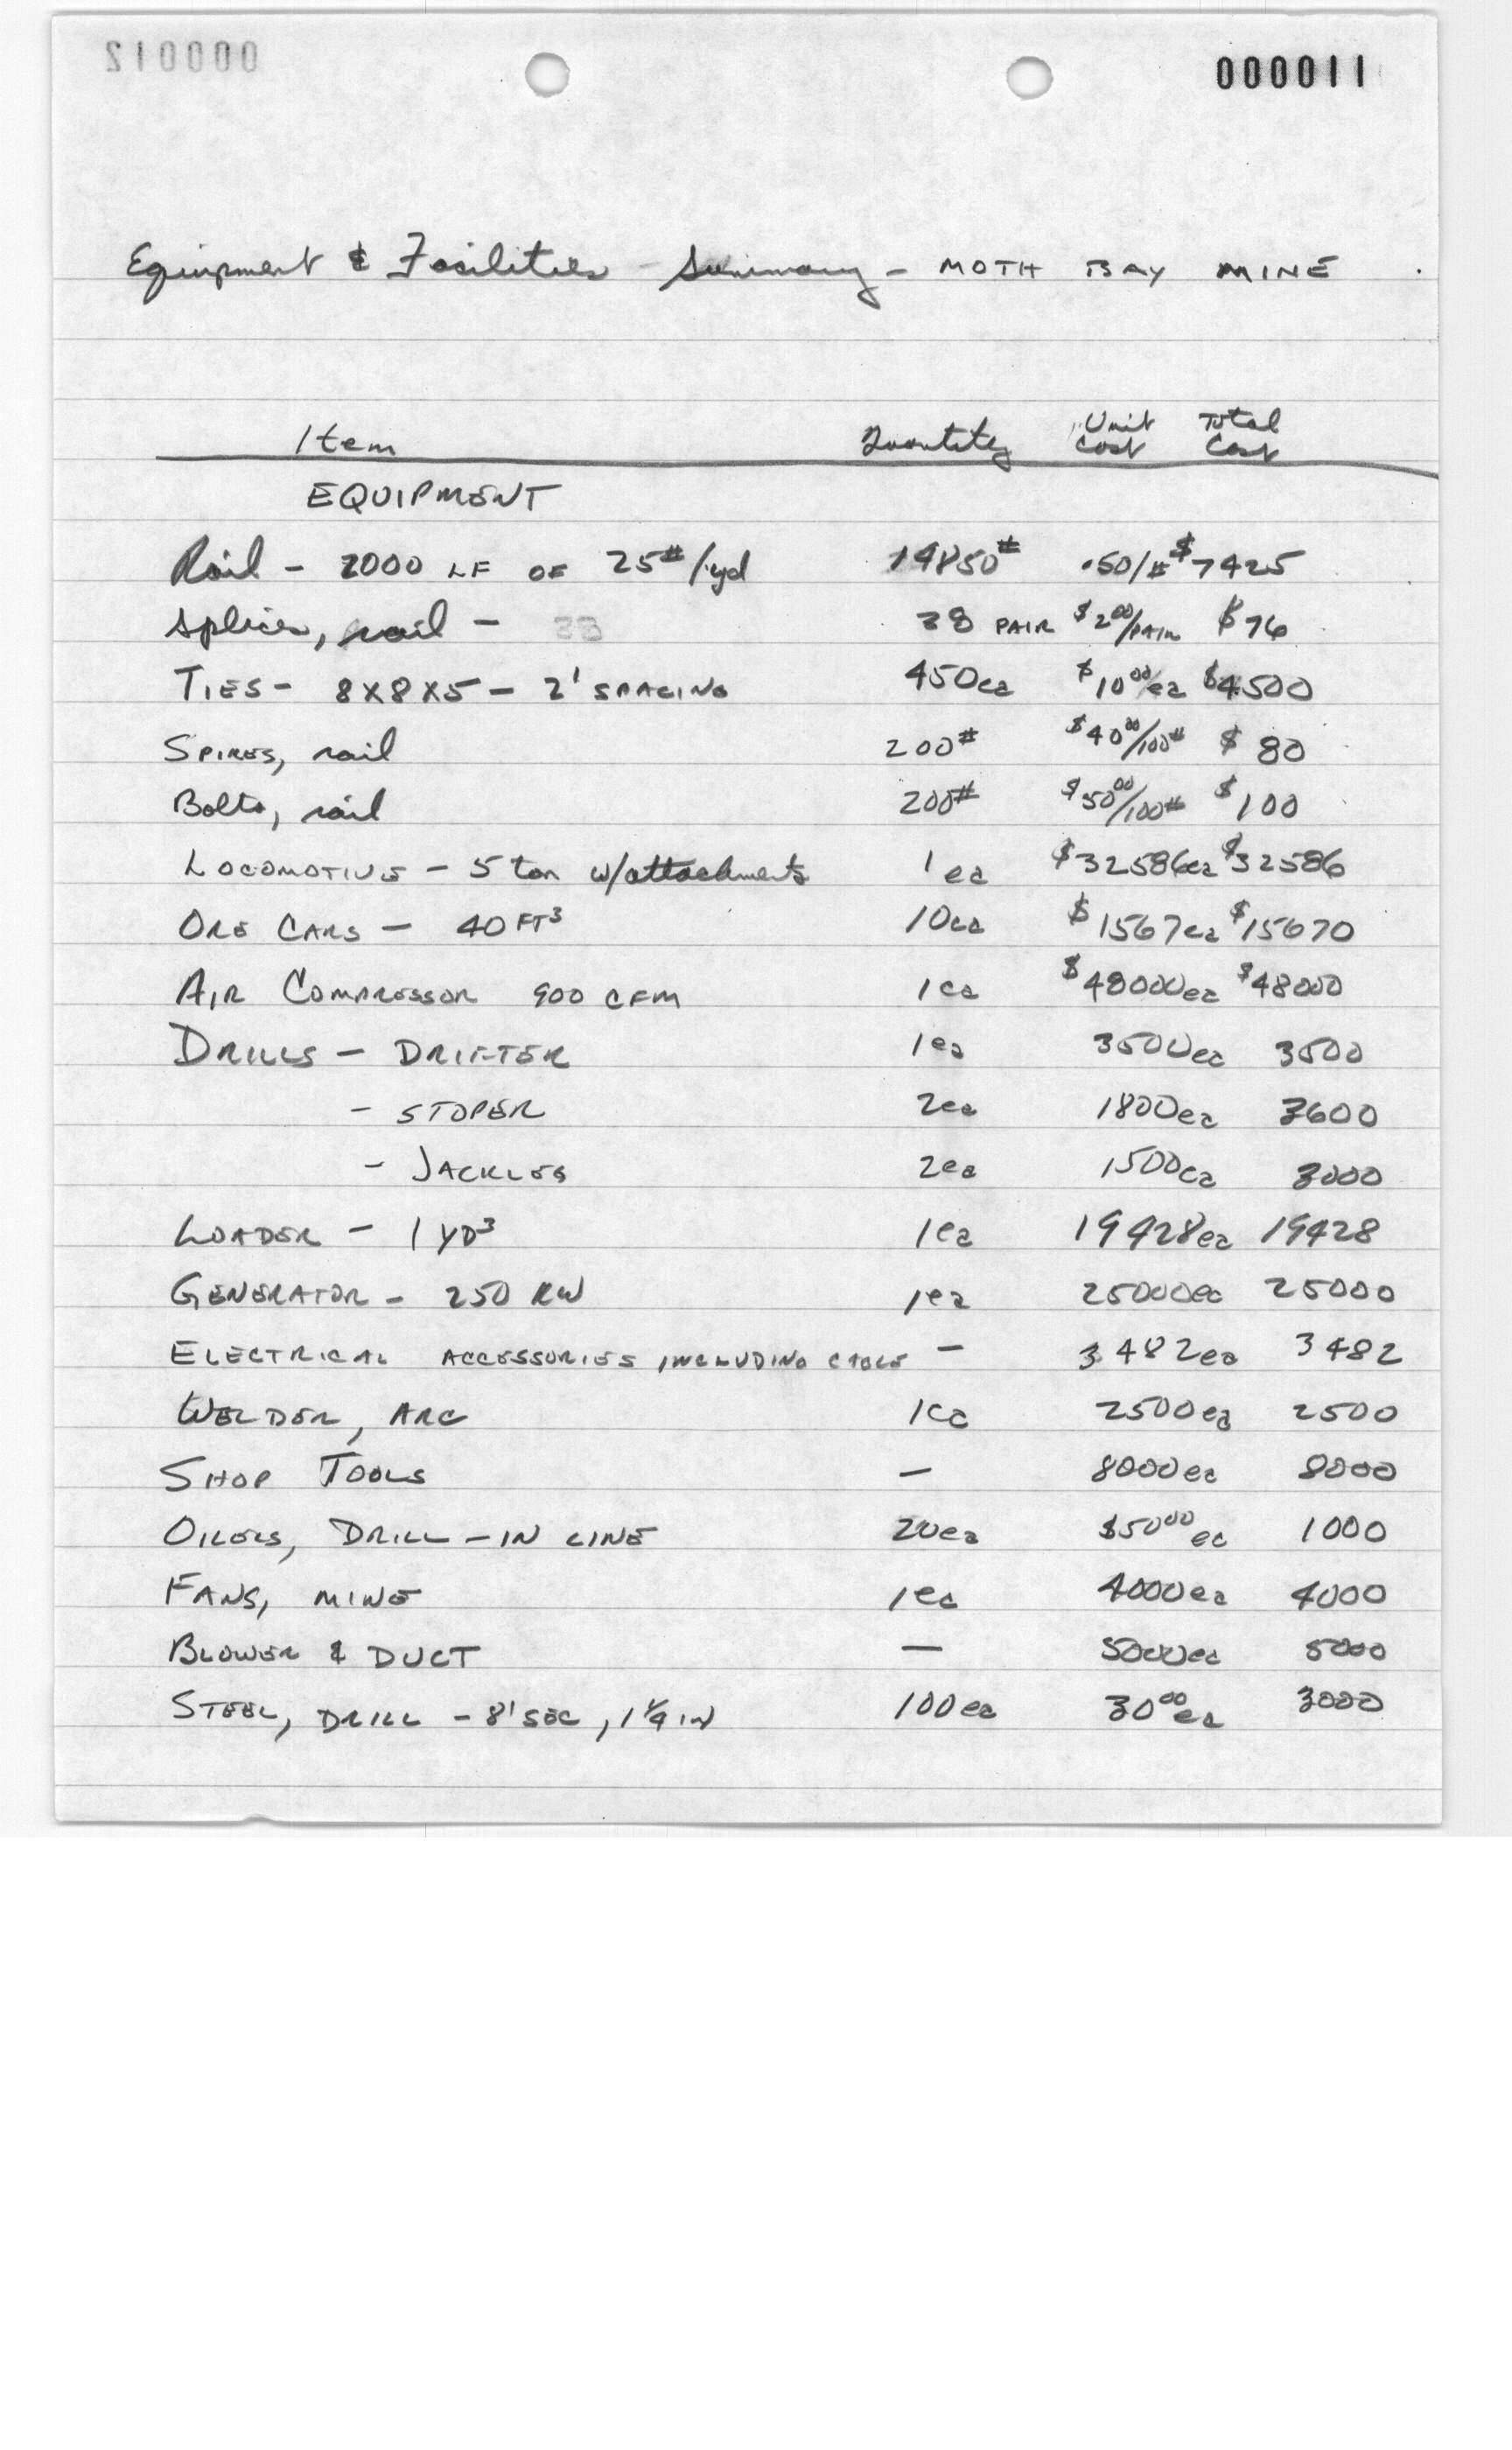 000011
Equipment & Facilities Summary - MOTH BAY MINE
Item Quantity Unit Cost Total Cost
EQUIPMENT
Rail - 2000 LF OF 25#/yd 14850# .50/# $7425
Splices, rail - 38 PAIR $2.00/PAIR $76
TIES - 8X8X5 - 2' SPACING 450ea $10.00/ea $4500
SPIKES, rail 200# $40.00/100# $80
Bolts, rail 200# $50.00/100# $100
LOCOMOTIVE - 5 ton w/attachments 1ea $32586ea $32586
ORE CARS - 40 FT³ 10ea $1567ea $15670
AIR COMPRESSOR 900 CFM 1ea $48000ea $48000
DRILLS - DRIFTER 1ea 3500ea 3500
- STOPER 2ea 1800ea 3600
- JACKLEG 2ea 1500ea 3000
LOADER - 1 YD³ 1ea 19428ea 19428
GENERATOR - 250 KW 1ea 25000ea 25000
ELECTRICAL ACCESSORIES INCLUDING CABLE - 3482ea 3482
WELDER, ARC 1ea 2500ea 2500
SHOP TOOLS - 8000ea 8000
OILERS, DRILL - IN LINE 20ea $50.00 ea 1000
FANS, MINE 1ea 4000ea 4000
BLOWER & DUCT - 5000ea 5000
STEEL, DRILL - 8' SEC, 1 1/4 IN 100ea 30.00 ea 3000